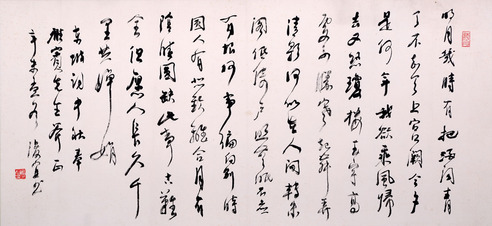 明月幾時有把酒问青
天不知天上宫闕今夕
是何年我欲乘風歸
去又恐瓊樓玉宇高
處不勝寒起舞弄
清影何似在人间轉朱
阁低绮户照無眠不应
有恨何事偏向别時
圆人有悲歡離合月有
陰晴圆缺此事古難
全但愿人長久千
里共婵娟
東坡詞中秋奉
先生斧正
辛未